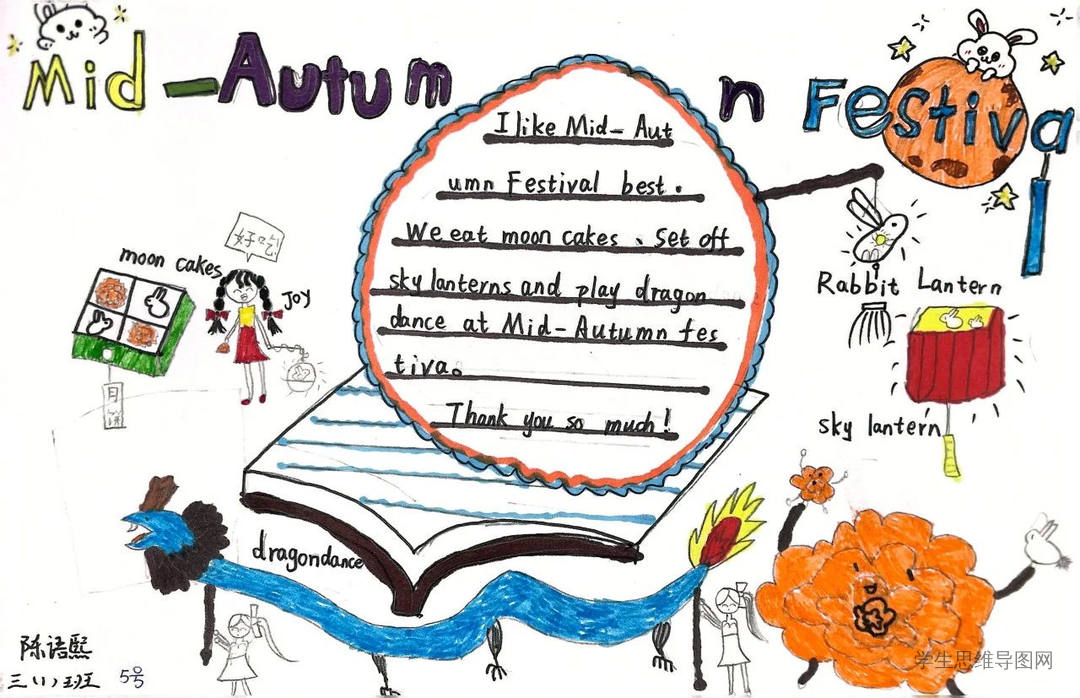 Mid-Autumn Festival
I like Mid-Aut
umn Festival best.
We eat moon cakes、set off
sky lanterns and play dragon
dance at Mid-Autumn fes
tiva。
Thank you so much!
好吃!
moon cakes
Joy
月饼
Rabbit Lantern
sky lantern
dragondance
陈语熙
三(1)班 5号
学生思维导图网